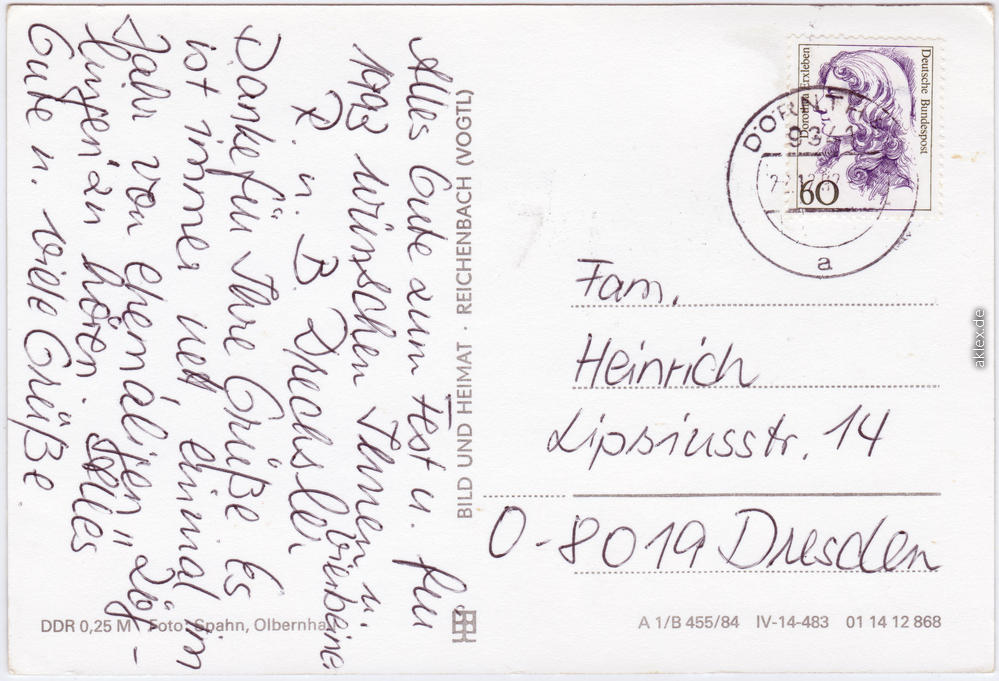 Alles Gute zum Fest u. für
1993 wünschen Ihnen u.
R. u. B. Drechsler
Danke für Ihre Grüße. Es
ist immer nett einmal im
Jahr von ehemaligen "Zög-
lingen" zu hören. Alles
Gute u. viele Grüße
BILD UND HEIMAT · REICHENBACH (VOGTL)
DDR 0,25 M Foto: Spahn, Olbernhau
Deutsche Bundespost
Dorothea Erxleben
60
a
Fam.
Heinrich
Lipsiusstr. 14
O-8019 Dresden
A 1/B 455/84 IV-14-483 01 14 12 868
aklex.de